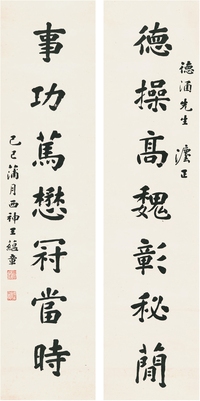 德涵先生 灋正
德操高魏彰秘簡
事功篤懋冠當時
己巳蒲月西神王蘊章